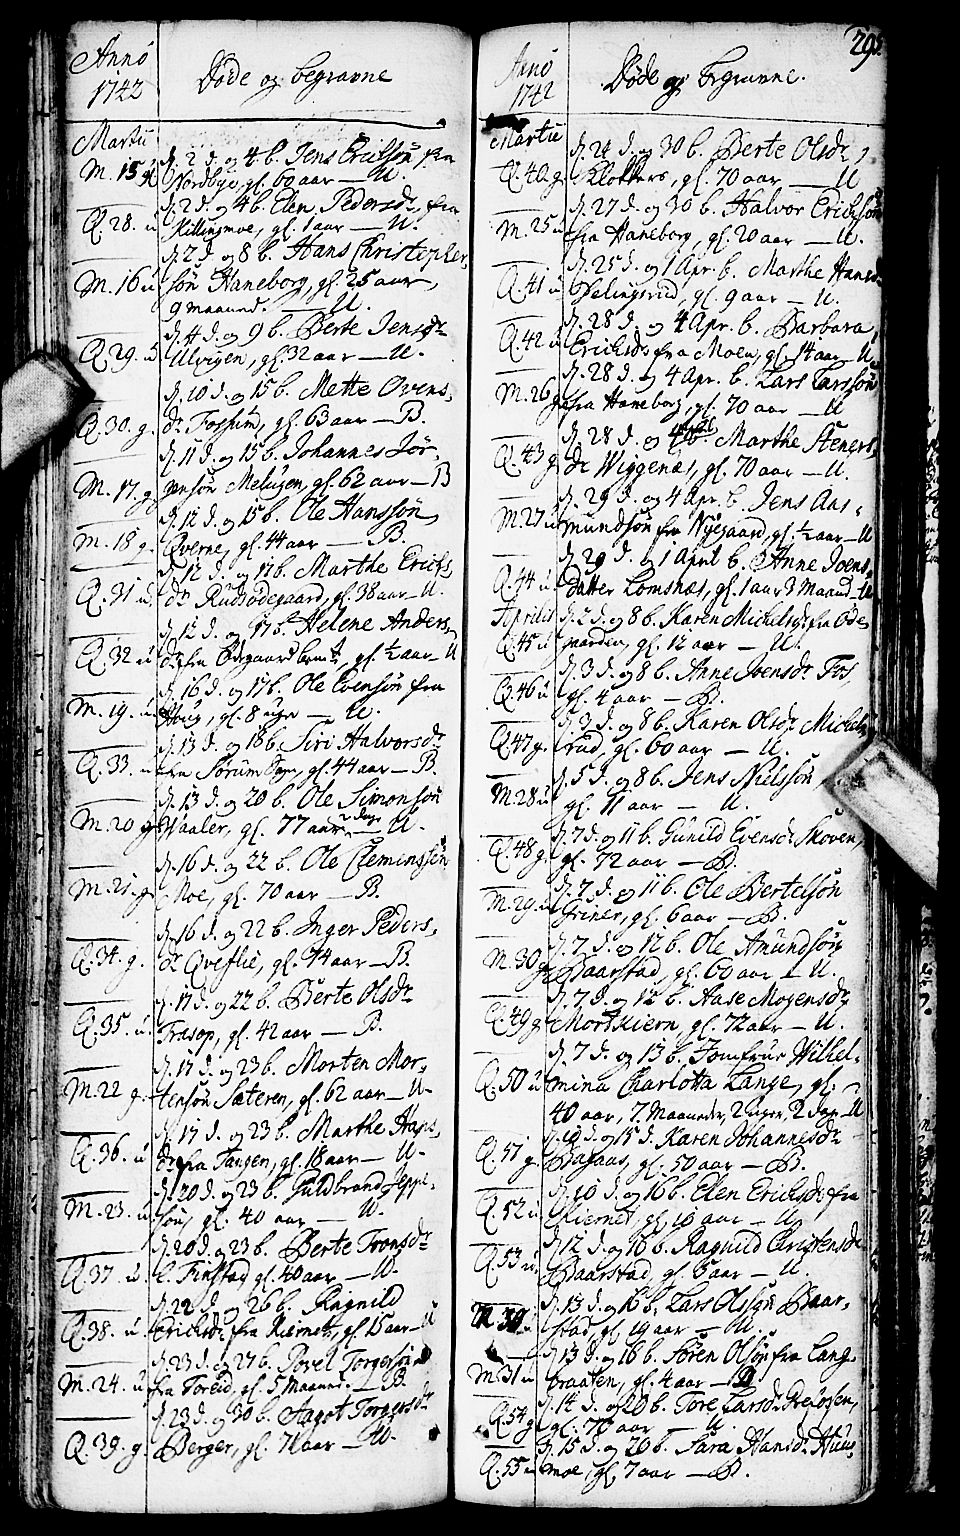 Anno
1742
Døde og begravne
Martii
M. 15 g.
d. 2 d. og 4 b. Jens Erichsøn fra
Nordbye, gl. 60 aar — U.
Q. 28. u
d. 2 d. og 4 b. Elen Pedersdr. fra
Killingmoe, gl. 1 aar — U.
d. 2 d. og 8 b. Hans Christopher-
M. 16 u
søn Haneborg, gl. 25 aar,
9 maaned. — U.
d. 4 d. og 9 b. Berte Jensdr.
Q. 29. u
Ulvigen, gl. 32 aar — U.
d. 10 d. og 15 b. Mette Ovens-
Q. 30. g.
dr. Fossum, gl. 63 aar — B.
d. 11 d. og 15 b. Johannes Jør-
M. 17. g.
gensøn Melugen, gl. 62 aar — B
d. 12 d. og 15 b. Ole Hanssøn
M. 18 g.
Qverne, gl. 44 aar — B.
d. 12 d. og 17 b. Marthe Erichs-
Q. 31 u.
dr. Rudsødegaard, gl. 38 aar — U.
d. 12 d. og 17 b. Helene Anders-
Q. 32 u
dr. fra gl. ½ aar — U
d. 16 d. og 17 b. Ole Evensøn fra
M. 19. u.
Houg, gl. 8 uger — U.
d. 13 d. og 18 b. Siri Halvorsdr.
Q. 33. u
fra Sørum gl. 44 aar — B.
d. 13 d. og 20 b. Ole Simonsøn
M. 20 g.
Haaler, gl. 77 aar 2 dage — U.
d. 16 d. og 22 b. Ole Clemmetsøn
M. 21. g.
Moe, gl. 70 aar — B.
d. 16 d. og 22 b. Inger Peders-
Q. 34. g.
dr. Qveflie, gl. 74 aar — B.
d. 17 d. og 22 b. Berte Olsdr.
Q. 35. u.
Frasop, gl. 42 aar — B.
d. 17 d. og 23 b. Morten Mor-
M. 22 g.
tensøn Sæteren, gl. 62 aar — U.
d. 17 d. og 23 b. Marthe Hans-
Q. 36. u
dr. fra Tangen, gl. 18 aar — U.
d. 20 d. og 23 b. Guldbrand Jeppe-
M. 23. u.
søn, gl. 40 aar — U.
d. 20 d. og 23 b. Berte Tronsdr.
Q. 37. u.
l. Finstad, gl. 40 aar — U.
d. 22 d. og 26 b. Ragnild
Q. 38. u.
Erichsdr. fra Kiernet, gl. 15 aar — U
d. 23 d. og 27 b. Povel Torgersøn
M. 24. u.
fra Toreid, gl. 5 Maaner. — B.
d. 23 d. og 30 b. Aagot Torgersdr.
Q. 39. g.
Berger, gl. 71 aar — U.
295
Anno
1742
Døde og begravne.
Martii
d. 24 d. og 30 b. Berte Olsdr.
Q. 40. g.
Klokkers, gl. 70 aar — U
d. 27 d. og 30 b. Halvor Erichsøn
M. 25 u
fra Haneborg, gl. 20 aar — U.
d. 25 d. og 1 Apr. b. Marthe Hansdr.
Q. 41 u
gl. 9 aar — U.
d. 28 d. og 4 Apr. b. Barbara
Q. 42 u
Erichsdr. fra Moen, gl. 14 aar — U.
d. 28 d. og 4 Apr. b. Lars Larssøn
M. 26 g
fra Haneborg, gl. 70 aar — U
d. 28 d. og 4 b. Marthe Steners-
Q. 43 g
dr. Wiggenæs, gl. 70 aar — U.
d. 29 d. og 4 Apr. b. Jens Aas-
M. 27 u
mundsøn fra Nyegaard, gl. ½ aar — U
d. 29 d. og 1 April b. Anne Joens-
Q. 44 u
datter Lomsnæs, gl. 1 aar 3 Maaned — U
Aprilis
d. 2 d. og 8 b. Karen Michelsdr. fra Øde-
Q. 45 u
gaarden, gl. 12 aar — U.
d. 3 d. og 8 b. Anne Joensdr. Fos,
Q. 46 u
gl. 4 aar — B.
d. 3 d. og 8 b. Karen Olsdr. Michels-
Q. 47 g.
rud, gl. 60 aar — U.
d. 5 d. og 8 b. Jens Nielssøn
M. 28 u
gl. 11 aar — U.
d. 7 d. og 11 b. Gunild Evensdr. Skoven,
Q. 48 g.
gl. 72 aar — B.
d. 7 d. og 11 b. Ole Bertelsøn
M. 29 u
Griner, gl. 6 aar — B.
d. 7. d. og 12 b. Ole Amundsøn
M. 30 g
Baarstad, gl. 60 aar — U.
d. 7. d. og 12 b. Aase Mogensdr.
Q. 49 g.
Mortkiern, gl. 72 aar — U.
d. 7 d. og 13 b. Jomfrue Wilhel-
Q. 50 u
mina Charlotta Lange, gl.
40 aar, 7. Maaneder, 2 uger, 2 dage — U
d. 10 d. og 15 d. Karen Johannesdr.
Q. 51 g.
Basaas, gl. 50 aar — B.
d. 10 d. og 16 b. Elen Erichsdr. fra
Q. 52 u
Kiernet, gl. 10 aar — U
d. 12 d. og 16 b. Ragnild Christensdr.
Q. 53 u
Baarstad, gl. 5 aar — U.
d. 13 d. og 16 b. Lars Olssøn Baar-
M. 30
stad gl. 19 aar — U.
d. 13 d. og 16 b. Søren Olsøn fra Lang-
M. 31 u
braaten, gl. 4 aar — B
d. 14 d. og 20 b. Tore Larsdr.
Q. 54 g
gl. 70 aar — U
d. 15 d. og 20 b. Sara Hansdr. Huus-
Q. 55 u
moe, gl. 7 aar — B.